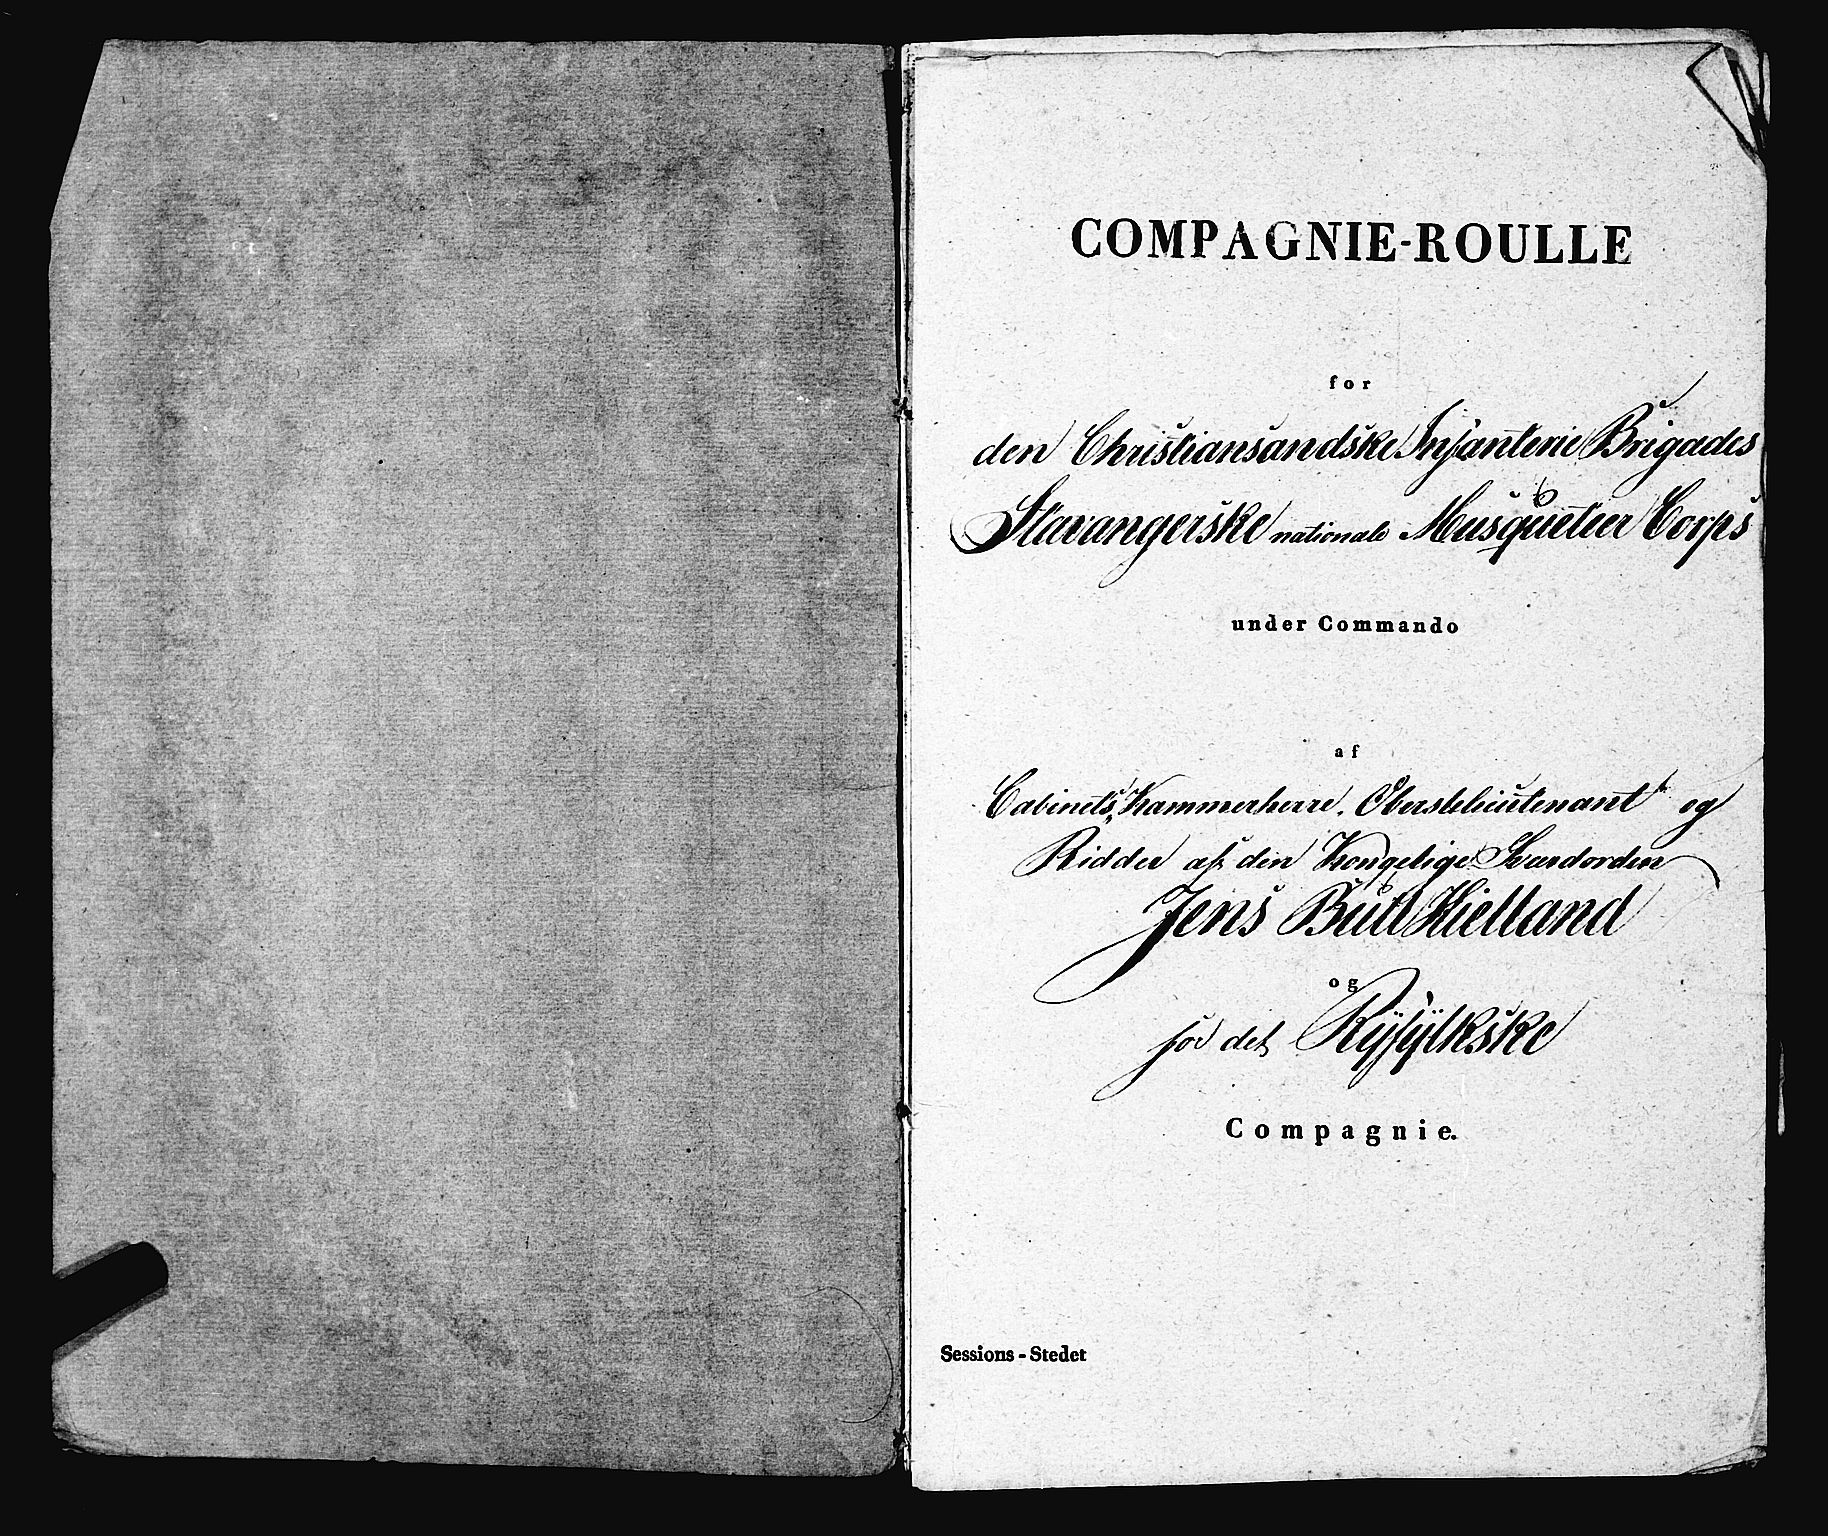 COMPAGNIE-ROULLE
for
den Christiansandske Infanterie Brigades
Stavangerske nationale Musqueteer Corps
under Commando
af
Cabinets Kammerherre, Obersteleutenant og
Ridder af den Kongelige Sværdorden
Jens Bull Kielland
og
for det Ryfylkske
Compagnie.
Sessions-Stedet